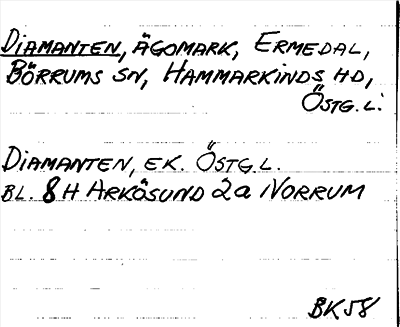 DIAMANTEN, ÄGOMARK, ERMEDAL,
BÖRRUMS SN, HAMMARKINDS HD,
ÖSTG.L.
DIAMANTEN, EK. ÖSTG.L.
BL. 8H ARKÖSUND 2a NORRUM
BK58